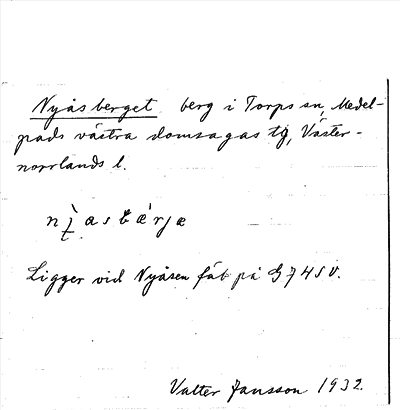 Nyåsberget berg i Torps sn, Medel-
pads västra domsagas tg, Väster-
norrlands l.
Ligger vid Nyåsen fäb på G 7 4 S V.
Valter Jansson 1932.